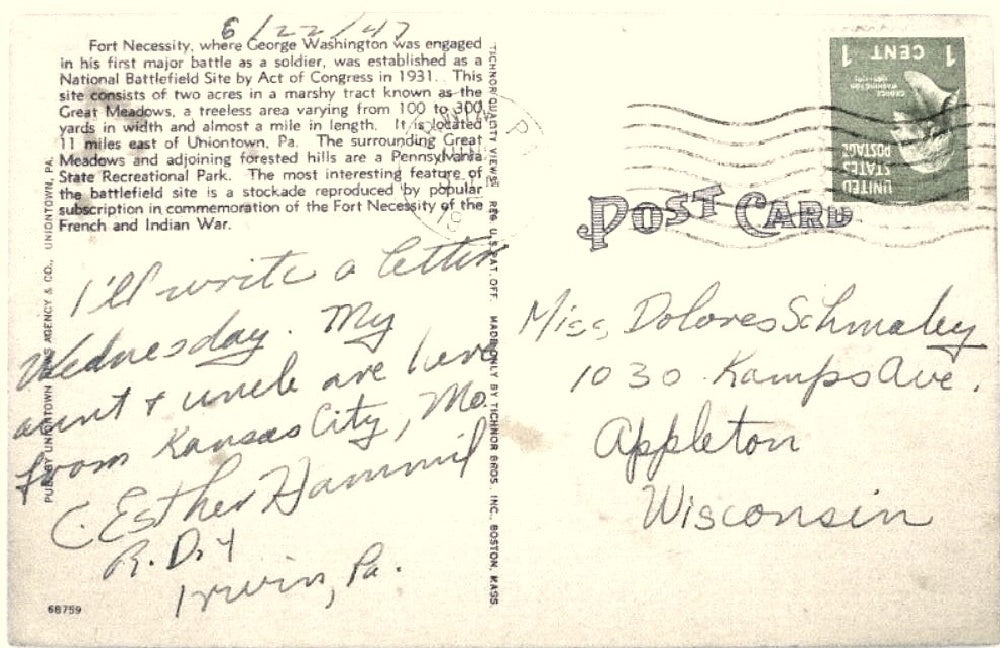 6/22/47
Fort Necessity, where George Washington was engaged
in his first major battle as a soldier, was established as a
National Battlefield Site by Act of Congress in 1931. This
site consists of two acres in a marshy tract known as the
Great Meadows, a treeless area varying from 100 to 300
yards in width and almost a mile in length. It is located
11 miles east of Uniontown, Pa. The surrounding Great
Meadows and adjoining forested hills are a Pennsylvania
State Recreational Park. The most interesting feature of
the battlefield site is a stockade reproduced by popular
subscription in commemoration of the Fort Necessity of the
French and Indian War.
I'll write a letter
Wednesday. My
aunt & uncle are here
from Kansas City, Mo.
C. Esther Hammil
R.D.4
Irwin, Pa.
68759
PUB. BY UNIONTOWN NEWS AGENCY & CO., UNIONTOWN, PA.
TICHNOR QUALITY VIEWS REG. U.S. PAT. OFF. MADE ONLY BY TICHNOR BROS. INC., BOSTON, MASS.
POST CARD
1 CENT 1
GEORGE
WASHINGTON
UNITED
STATES
POSTAGE
Miss Dolores Schmaley
1030 Kamps Ave.
Appleton
Wisconsin